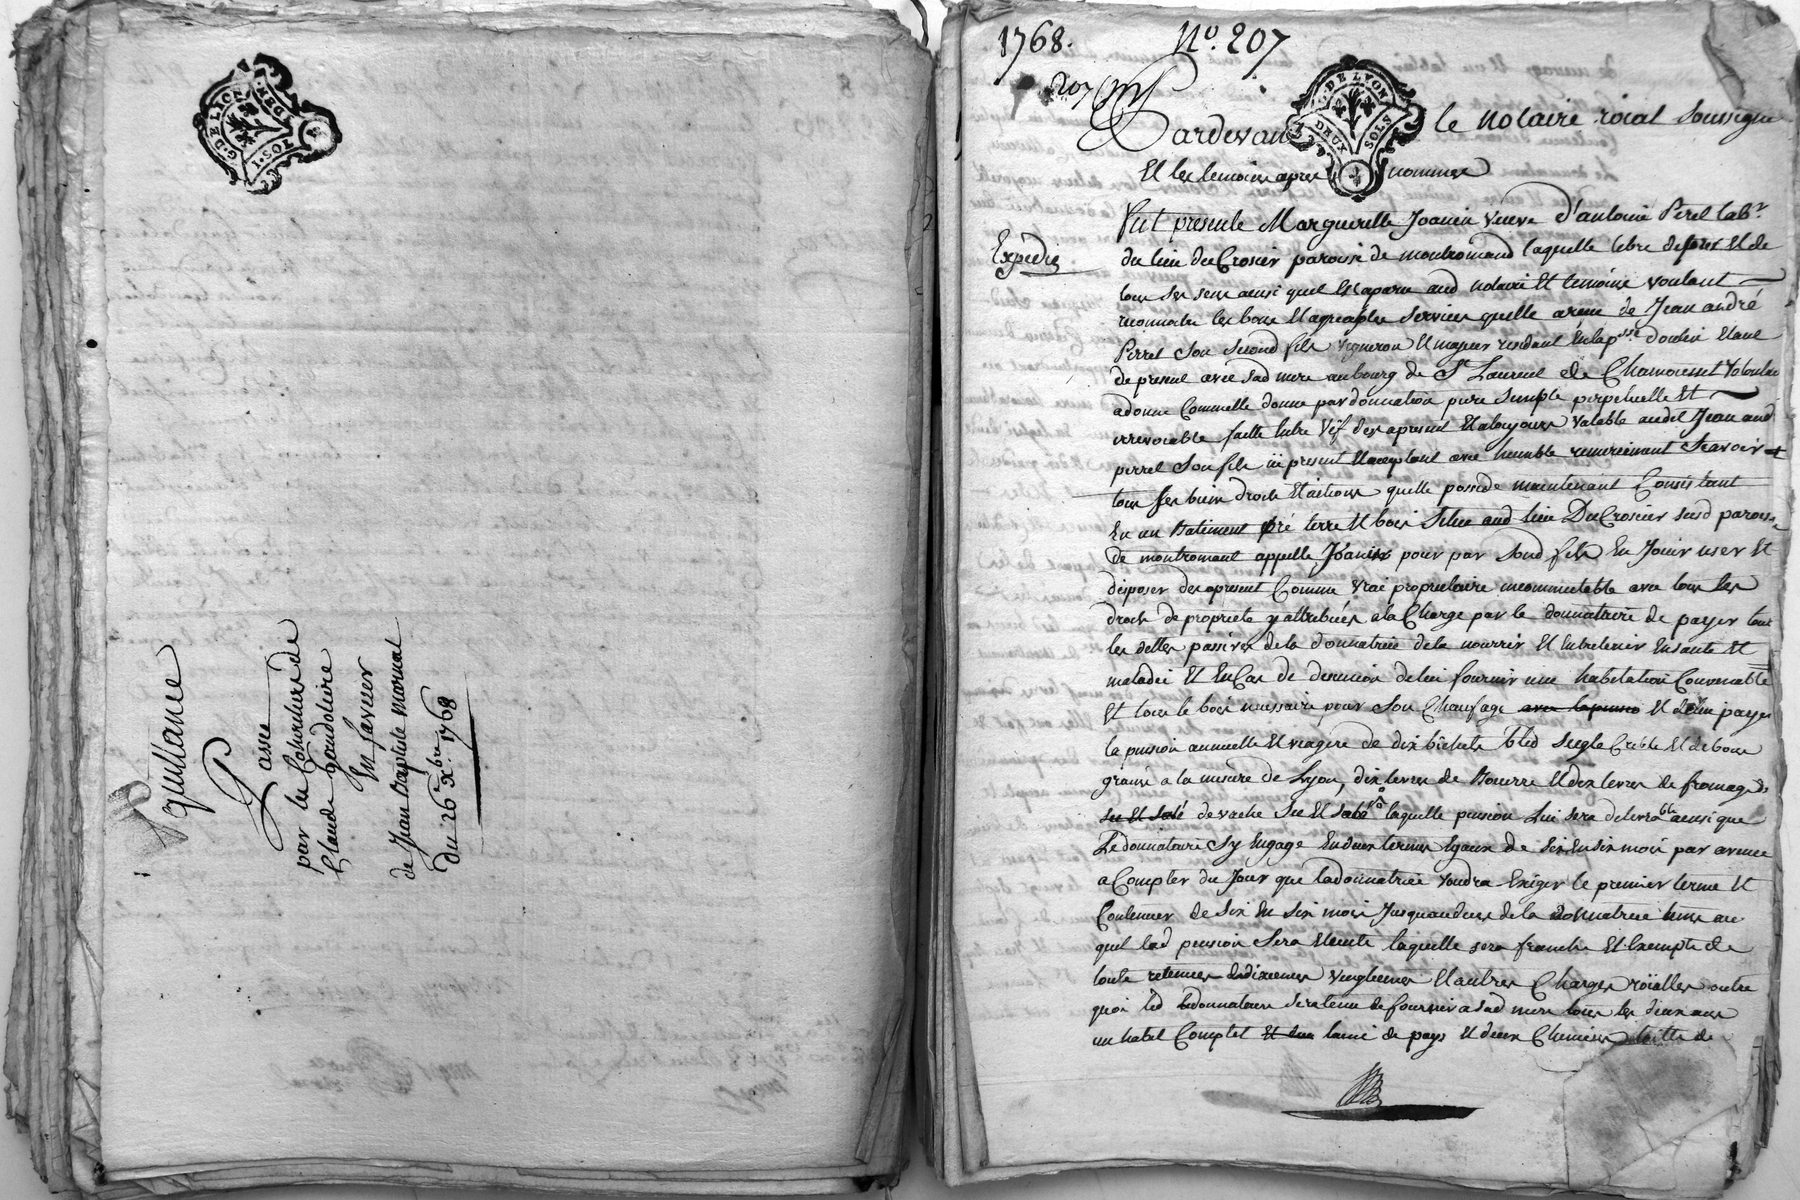 G. DE LION
DEN.
1. SOL
quittance
Passé
par les Cohéritiers de
Claude gaudoliere
En faveur
de Jean Baptiste mornat
du 26e Xbre 1768
1768.
No. 207
207
G. DE LYON
DEUX SOLS
Pardevant le notaire roial soussigné
Et les temoins apres nommes
Expedié
fut presente Margueritte Joanin veuve d'antoine Perel labr
du lieu du Crosier paroisse de montromand laquelle libre de foix Et de
tous ses sens ainsi quil Est aparu aud notaire Et temoins voulant
reconnaitre les bons Et agreables services quelle a recu de Jean andré
Perrel son second fils vigneron Et masson residant En la psse doulin Etant
de present avec sad mere au bourg de St Laurent de Chamousset
a donné Comme elle donne par donnation pure simple perpétuelle Et
irrevocable faitte Entre vif des apresent Et a toujours valable audit Jean and
perrel son fils ici present Et acceptant avec humble remerciement Scavoir
tous ses biens droits Et actions quelle posséde maintenant Consistant
En un Batiment pré terre Et bois Situé aud lieu Du Crosier susd paroisse
de montromant appellé Joanin pour par sond fils En Jouir user Et
disposer des apresent Comme vrai proprietaire incommutable avec tous les
droits de proprieté y attribués a la Charge par le donnataire de payer tout
les dettes passives de la donnatrice de la nourrir Et Entretenir En santé Et
maladie Et En Cas de desunion de lui fournir une habitation Convenable
Et tous le bois necessaire pour son Chaufage avec la pension Et de lui payer
la pension annuelle Et viagere de dix bichets bled seigle Crible Et de bonne
graine a la mesure de Lyon, dix livres de Beurre Et dix livres de fromage
sec Et salé de vache sec Et salé laquelle pension lui sera delivrable ainsi que
Le donnataire sy Engage En deux termes Egaux de six En six mois par avance
a Compter du Jour que la donnatrice voudra Exiger le premier terme Et
Continuer de six En six mois Jusquau deces de la donnatrice tems au
quel lad pension sera Eteinte laquelle sera franche Et Exempte de
toute retenues de dixiemes vingtiemes Et autres Charges roïalles outre
quoi led donnataire sera tenu de fournir a sad mere tous les deux ans
un habit Complet Et de laine de pays Et deux Chemises toille de